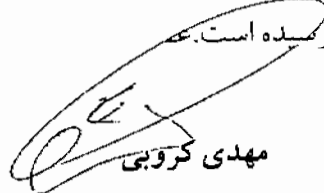 رسیده است.
مهدی کروبی